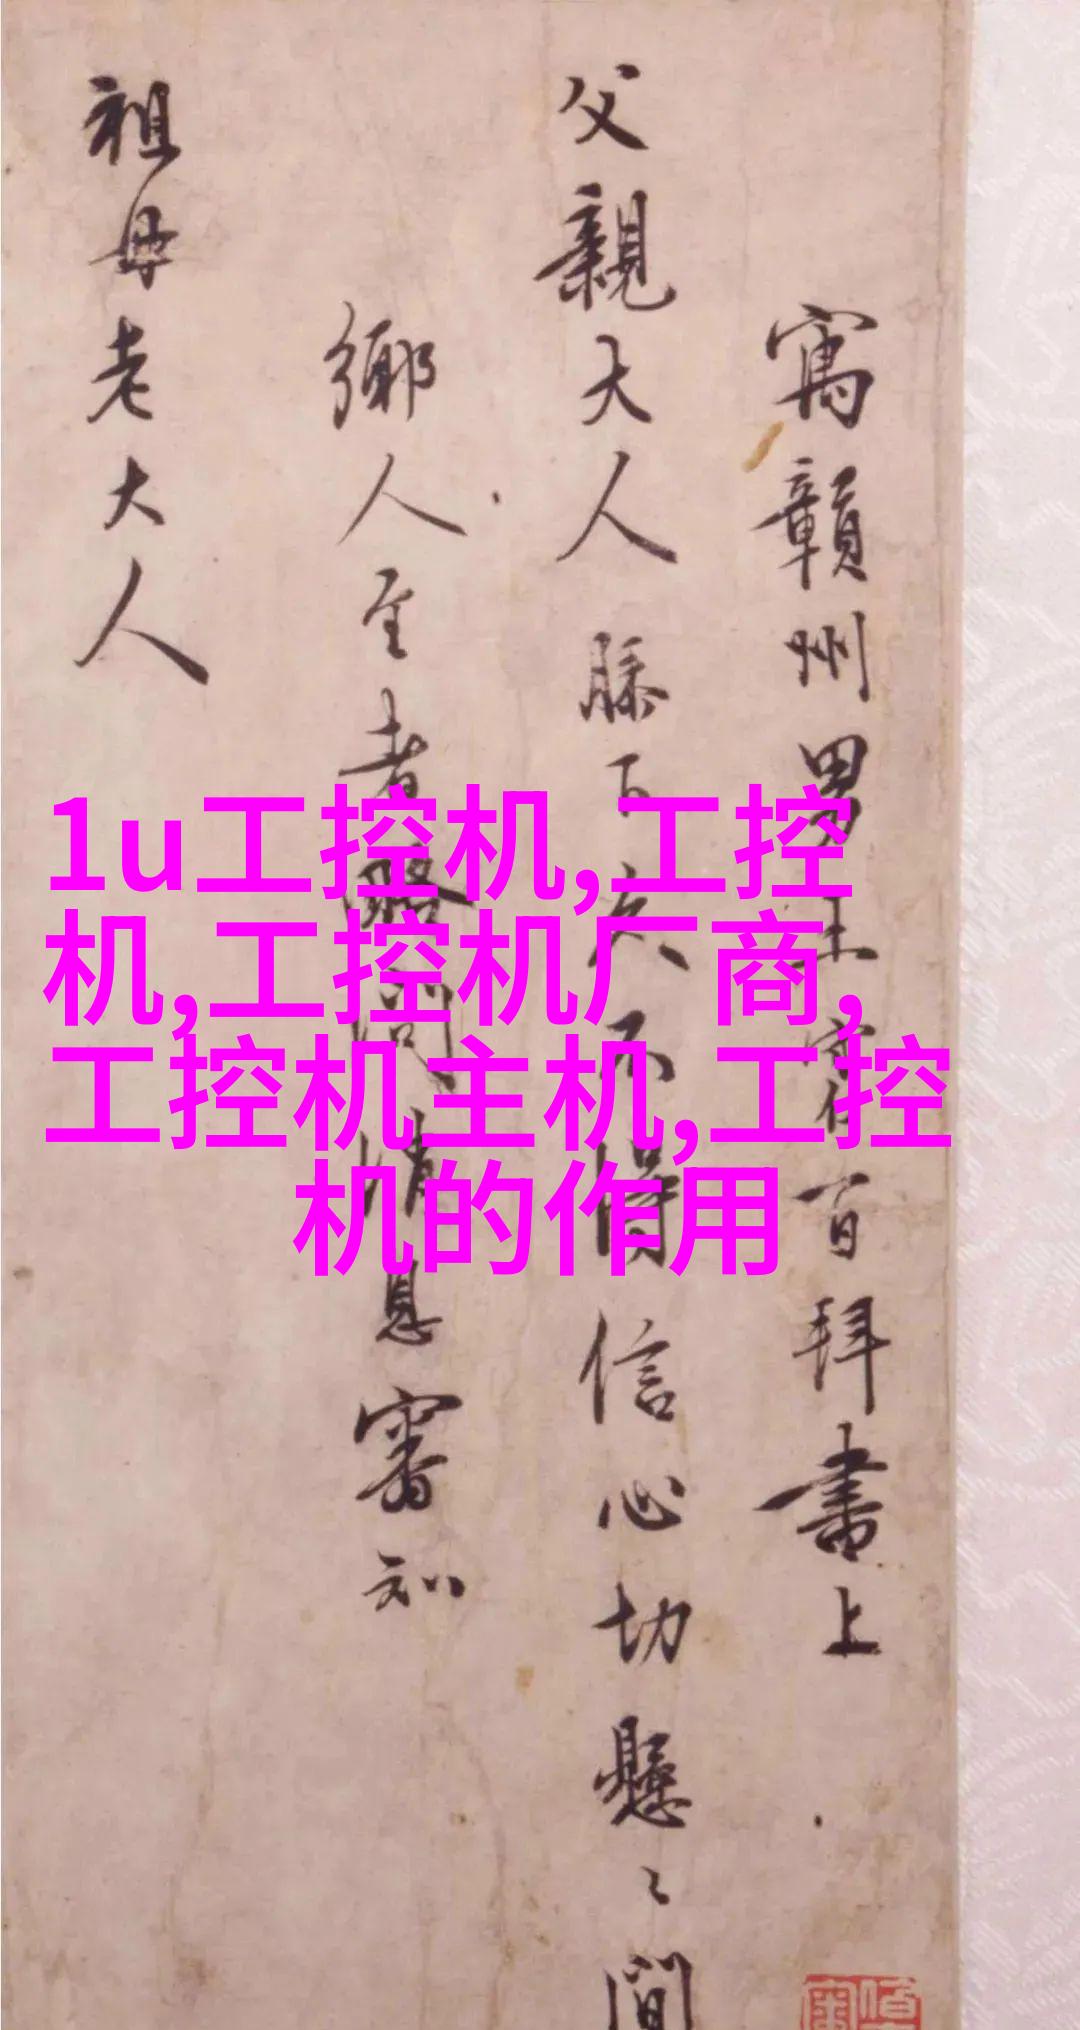 寓贛州男王守仁百拜書上
父親大人膝下久不得信心切懸〻間
鄉人至者略問消息審知
祖母老大人
1u工控机,工控
机,工控机厂商,
工控机主机,工控
机的作用